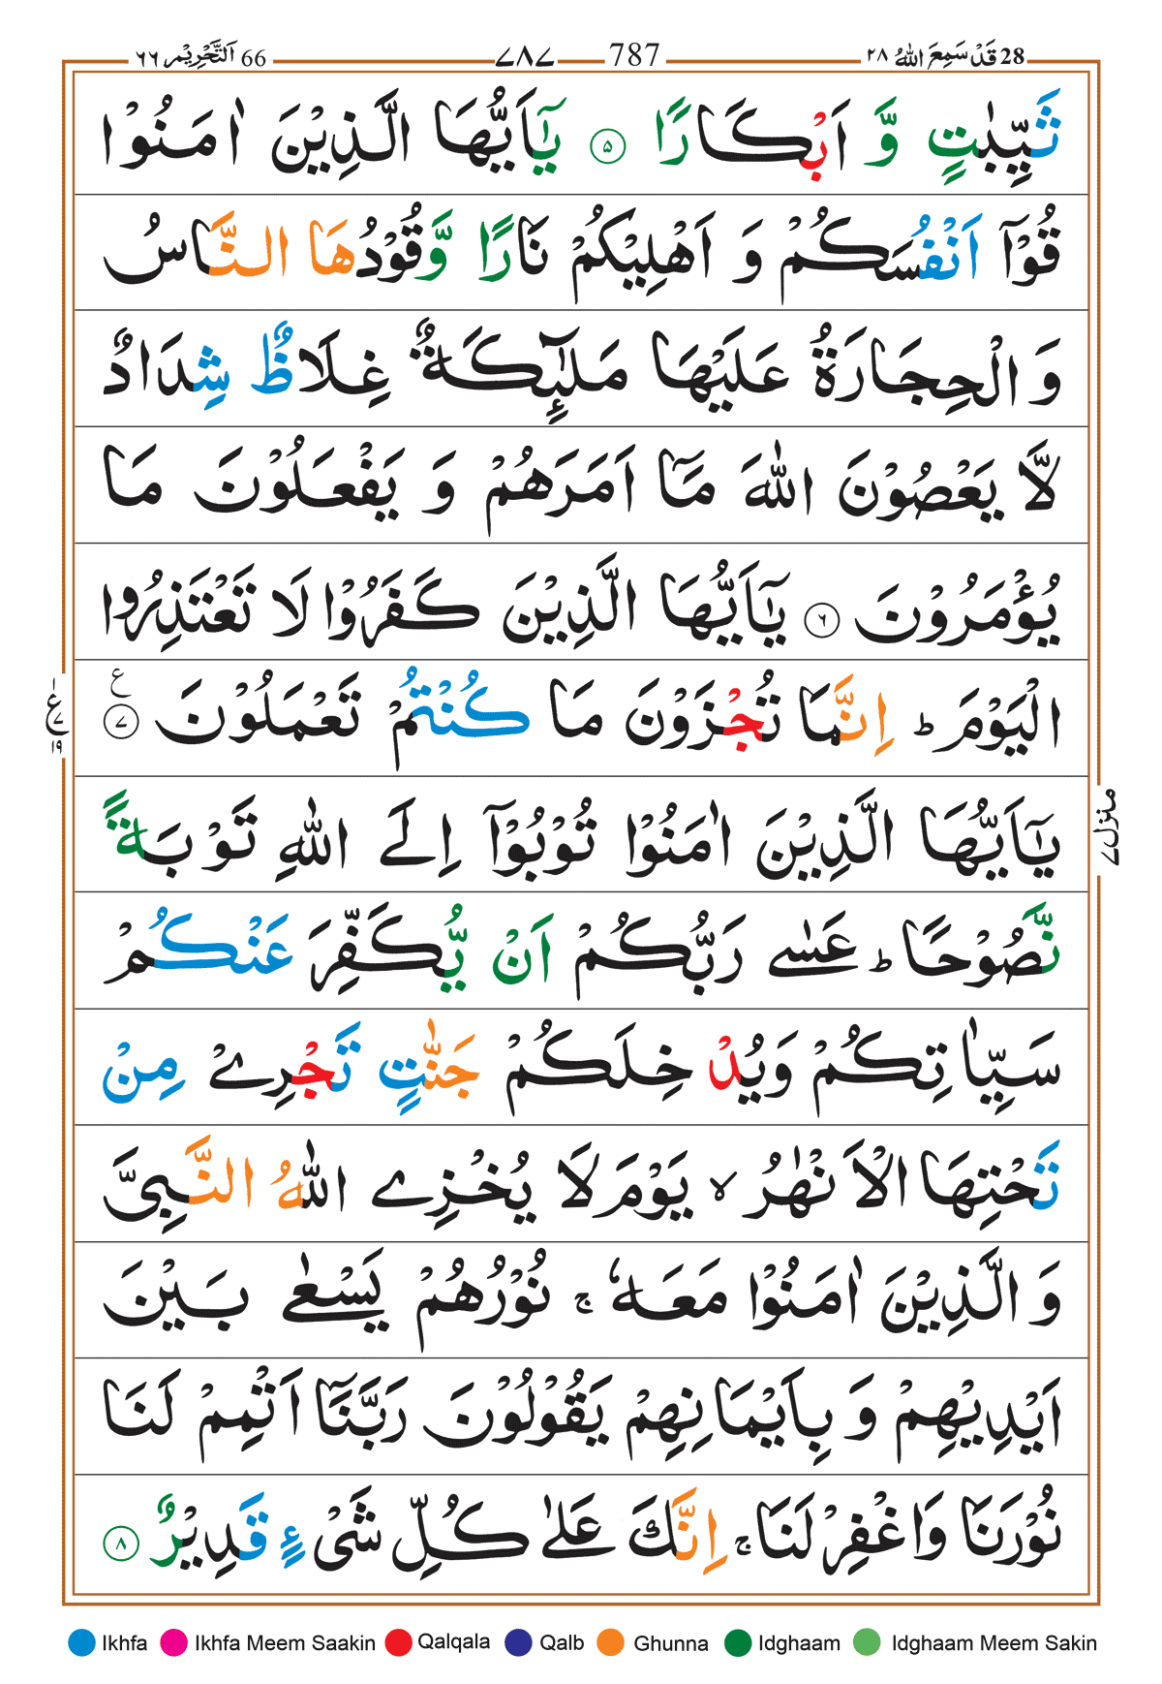 66 اَلتَّحْرِيْم ٦٦ ٧٨٧ 787 28 قَدْ سَمِعَ اللّٰهُ ٢٨
ثَيِّبٰتٍ وَّ اَبْكَارًا ۵ يٰۤاَيُّهَا الَّذِيْنَ اٰمَنُوْا
قُوْۤا اَنْفُسَكُمْ وَ اَهْلِيْكُمْ نَارًا وَّقُوْدُهَا النَّاسُ
وَ الْحِجَارَةُ عَلَيْهَا مَلٰٓئِكَةٌ غِلَاظٌ شِدَادٌ
لَّا يَعْصُوْنَ اللّٰهَ مَاۤ اَمَرَهُمْ وَ يَفْعَلُوْنَ مَا
يُؤْمَرُوْنَ ۶ يٰۤاَيُّهَا الَّذِيْنَ كَفَرُوْا لَا تَعْتَذِرُوا
الْيَوْمَ ؕ اِنَّمَا تُجْزَوْنَ مَا كُنْتُمْ تَعْمَلُوْنَ ۷ ع
٧ ع ١٩
يٰۤاَيُّهَا الَّذِيْنَ اٰمَنُوْا تُوْبُوْۤا اِلَى اللّٰهِ تَوْبَةً
منزل ٧
نَّصُوْحًا ؕ عَسٰى رَبُّكُمْ اَنْ يُّكَفِّرَ عَنْكُمْ
سَيِّاٰتِكُمْ وَيُدْخِلَكُمْ جَنّٰتٍ تَجْرِيْ مِنْ
تَحْتِهَا الْاَنْهٰرُ ۙ يَوْمَ لَا يُخْزِى اللّٰهُ النَّبِيَّ
وَ الَّذِيْنَ اٰمَنُوْا مَعَهٗ ۚ نُوْرُهُمْ يَسْعٰى بَيْنَ
اَيْدِيْهِمْ وَ بِاَيْمَانِهِمْ يَقُوْلُوْنَ رَبَّنَاۤ اَتْمِمْ لَنَا
نُوْرَنَا وَاغْفِرْ لَنَا ۚ اِنَّكَ عَلٰى كُلِّ شَيْءٍ قَدِيْرٌ ۸
Ikhfa Ikhfa Meem Saakin Qalqala Qalb Ghunna Idghaam Idghaam Meem Sakin